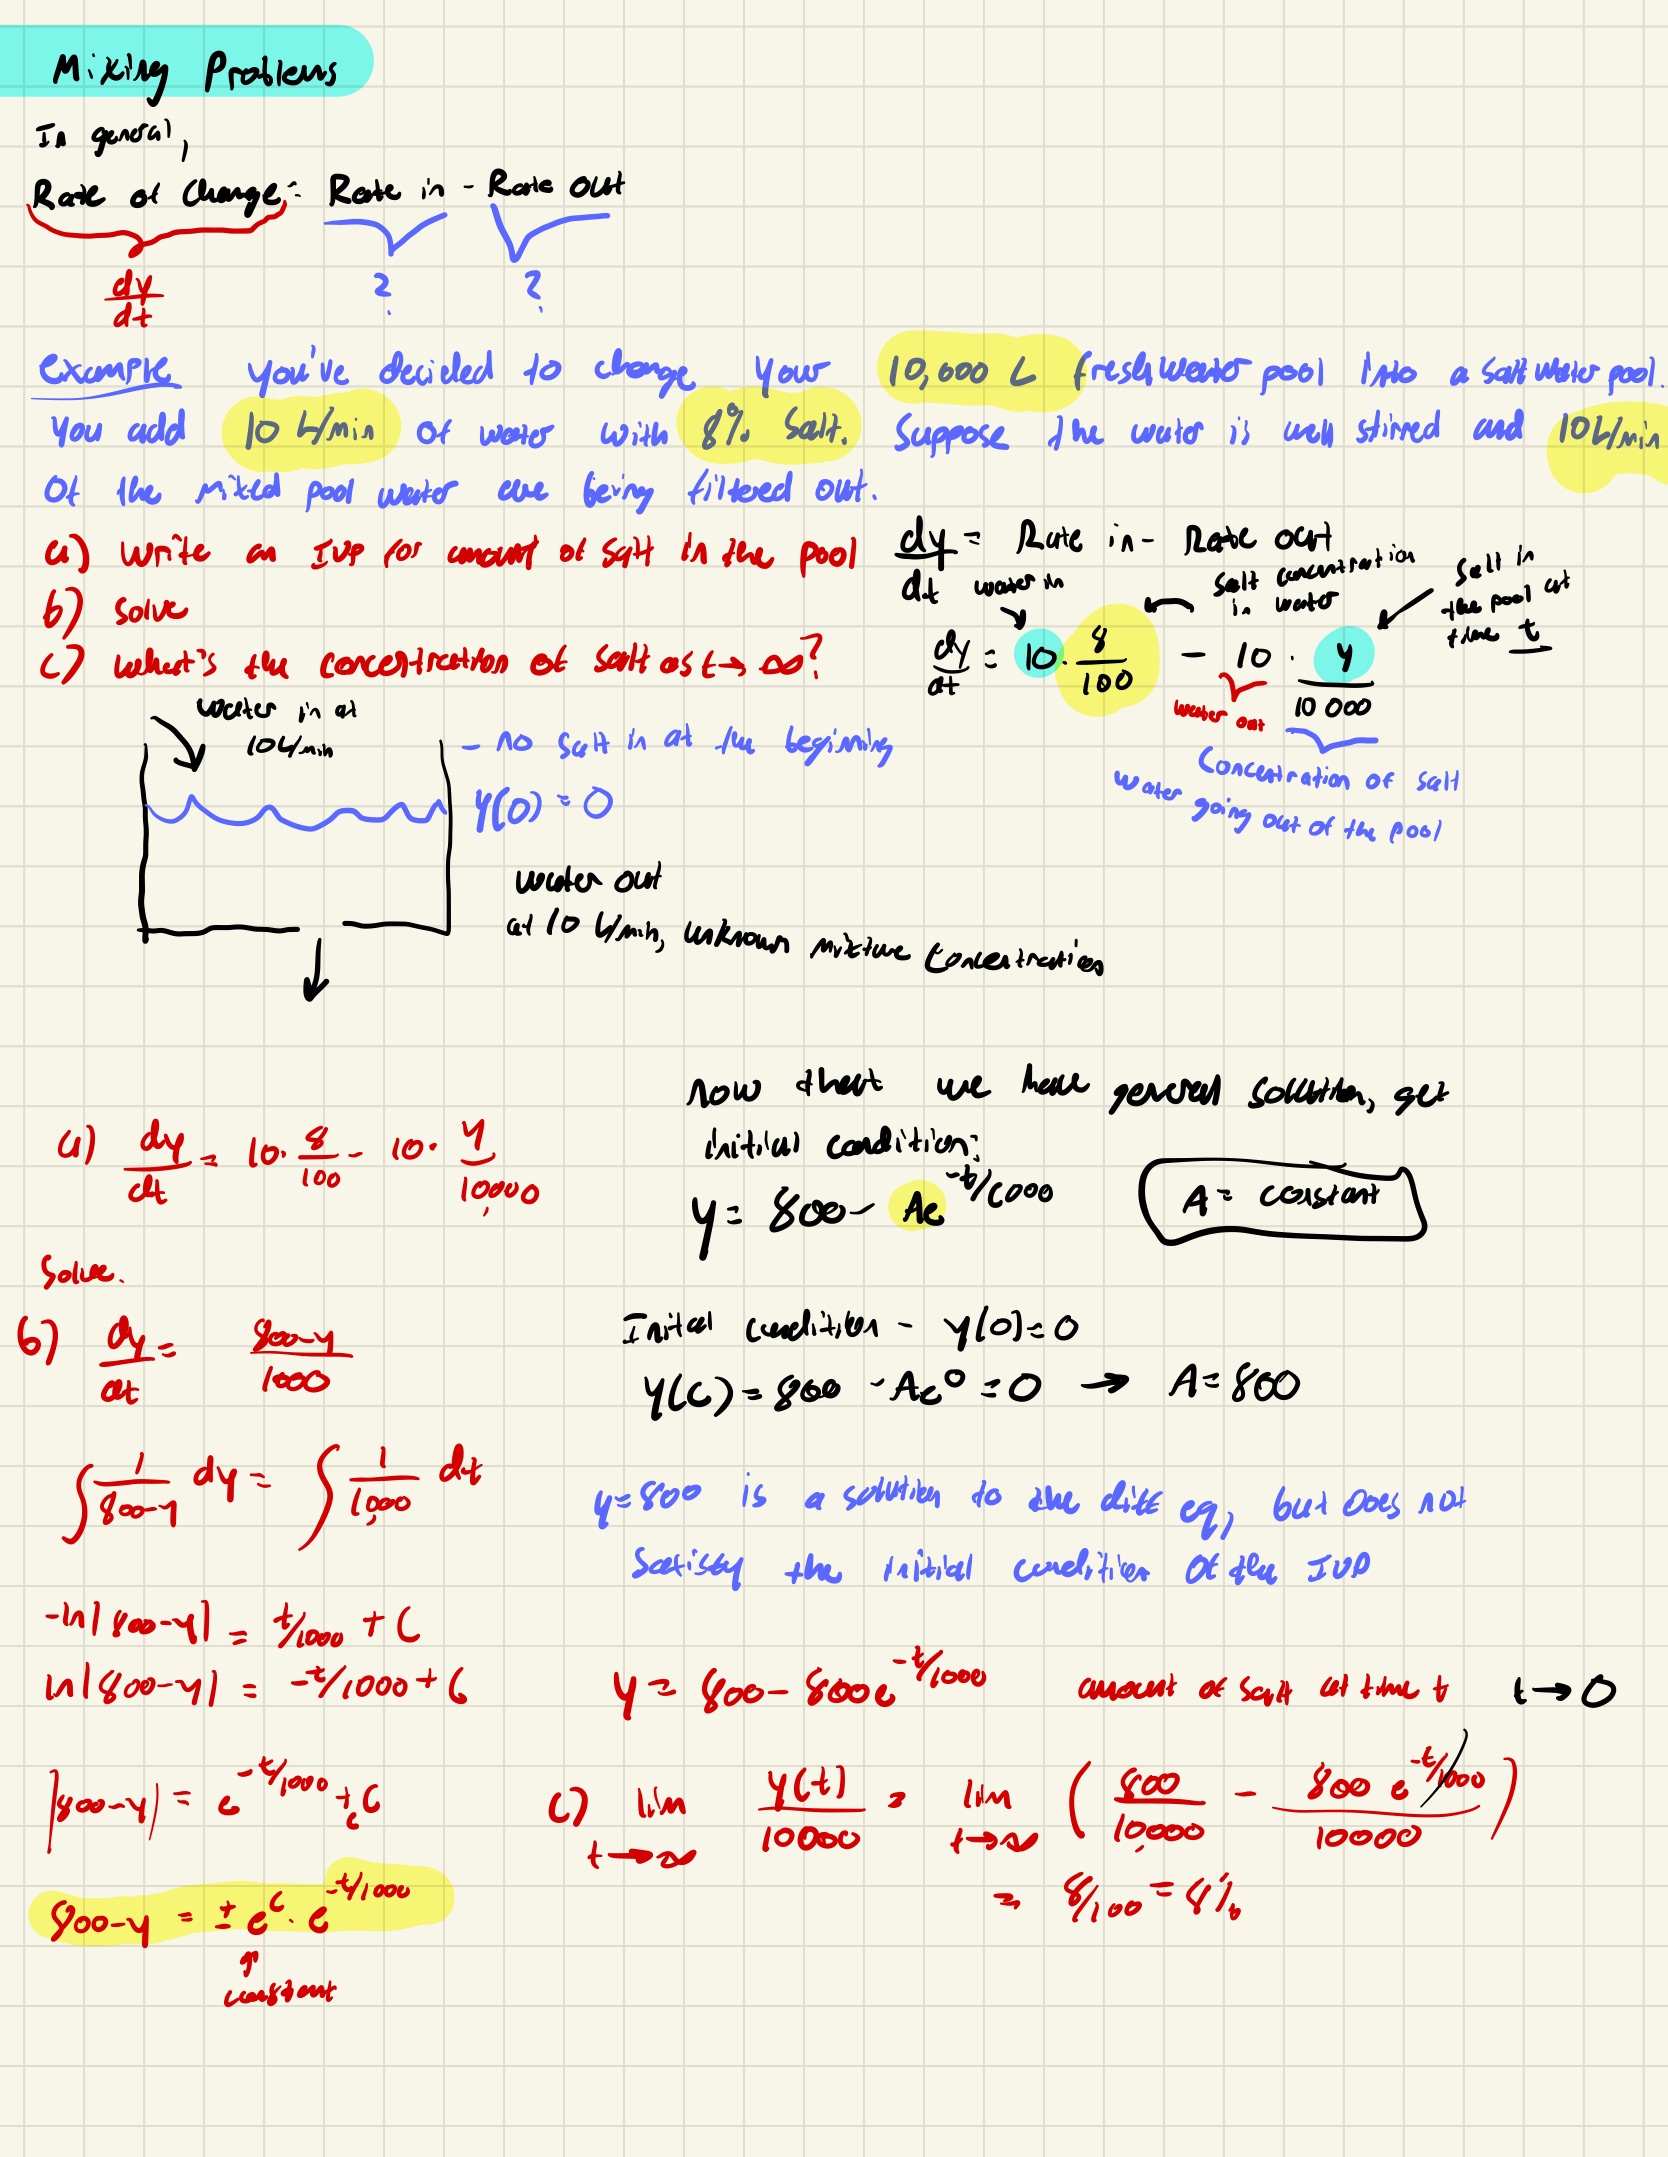 Mixing Problems
In general,
Rate of Change = Rate in - Rate out
dy/dt ? ?
Example You've decided to change your 10,000 L freshwater pool into a saltwater pool.
You add 10 L/min of water with 8% Salt. Suppose the water is well stirred and 10 L/min
of the mixed pool water are being filtered out.
a) Write an IVP for amount of salt in the pool
b) solve
c) What's the concentration of salt as t → ∞?
dy/dt = Rate in - Rate out
water in
salt concentration in water
salt in the pool at time t
dy/dt = 10 · 8/100 - 10 · y/10 000
water out
Concentration of salt
water going out of the pool
water in at
10 L/min
- no salt in at the beginning
y(0) = 0
water out
at 10 L/min, unknown mixture concentration
a) dy/dt = 10 · 8/100 - 10 · y/10,000
Solve.
b) dy/dt = 800-y/1000
∫ 1/800-y dy = ∫ 1/1,000 dt
-ln|800-y| = t/1000 + C
ln|800-y| = -t/1000 + C
|800-y| = e^-t/1000 + C
800-y = ± e^C · e^-t/1000
↑
constant
now that we have general solution, get
initial condition:
y = 800 - Ae^-t/1000
A = constant
Inital condition - y(0) = 0
y(0) = 800 - Ae^0 = 0 → A = 800
y=800 is a solution to the diff eq, but does not
satisfy the initial condition of the IVP
y = 800 - 800e^-t/1000 amount of salt at time t t → 0
c) lim t→∞ y(t)/10000 = lim t→∞ (800/10,000 - 800 e^-t/1000/10000)
= 8/100 = 8%